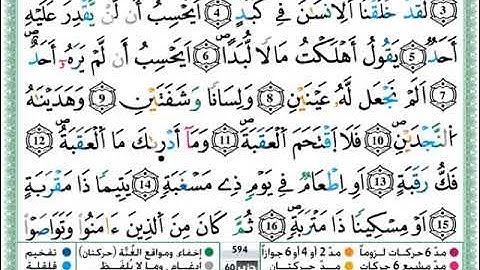 ③ لَقَدْ خَلَقْنَا اَ۬لِانسَٰنَ فِے كَبَدٍ ④ اَيَحْسِبُ أَن لَّنْ يَّقْدِرَ عَلَيْهِ
أَحَدٌ ⑤ يَقُولُ أَهْلَكْتُ مَالاٗ لُّبَداً ⑥ اَيَحْسِبُ أَن لَّمْ يَرَهُۥٓ أَحَدٌ
⑦ اَلَمْ نَجْعَل لَّهُۥ عَيْنَيْنِ ⑧ وَلِسَاناٗ وَشَفَتَيْنِ ⑨ وَهَدَيْنَٰهُ
اُ۬لنَّجْدَيْنِ ⑩ فَلَا اَ۪قْتَحَمَ اَ۬لْعَقَبَةَ ⑪ وَمَآ أَدْر۪يٰكَ مَا اَ۬لْعَقَبَةُ ⑫
فَكُّ رَقَبَةٍ ⑬ اَوِ اِطْعَٰمٞ فِے يَوْمٖ ذِے مَسْغَبَةٖ ⑭ يَتِيماٗ ذَا مَقْرَبَةٍ
⑮ اَوْ مِسْكِيناٗ ذَا مَتْرَبَةٖ ⑯ ثُمَّ كَانَ مِنَ اَ۬لذِينَ ءَامَنُواْ وَتَوَاصَوْاْ
مدّ 6 حركات لزوماً مدّ 2 أو 4 أو 6 جوازاً 594 إخفاء، ومواقع الغُنَّة (حركتان) تفخيم
مدّ مشبع 6 حركات مدّ حركتان 60 إدغام، وما لا يُلفظ قلقلة